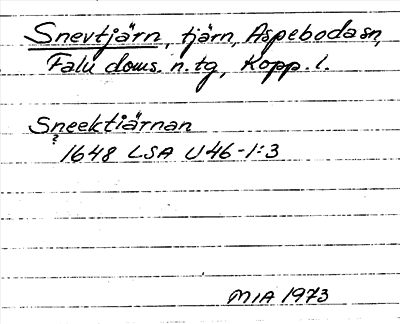 Snevtjärn, tjärn, Aspeboda sn,
Falu doms. n. tg, Kopp. l.
Sneektiärnan
?
1648 LSA U46-1:3
MIA 1973